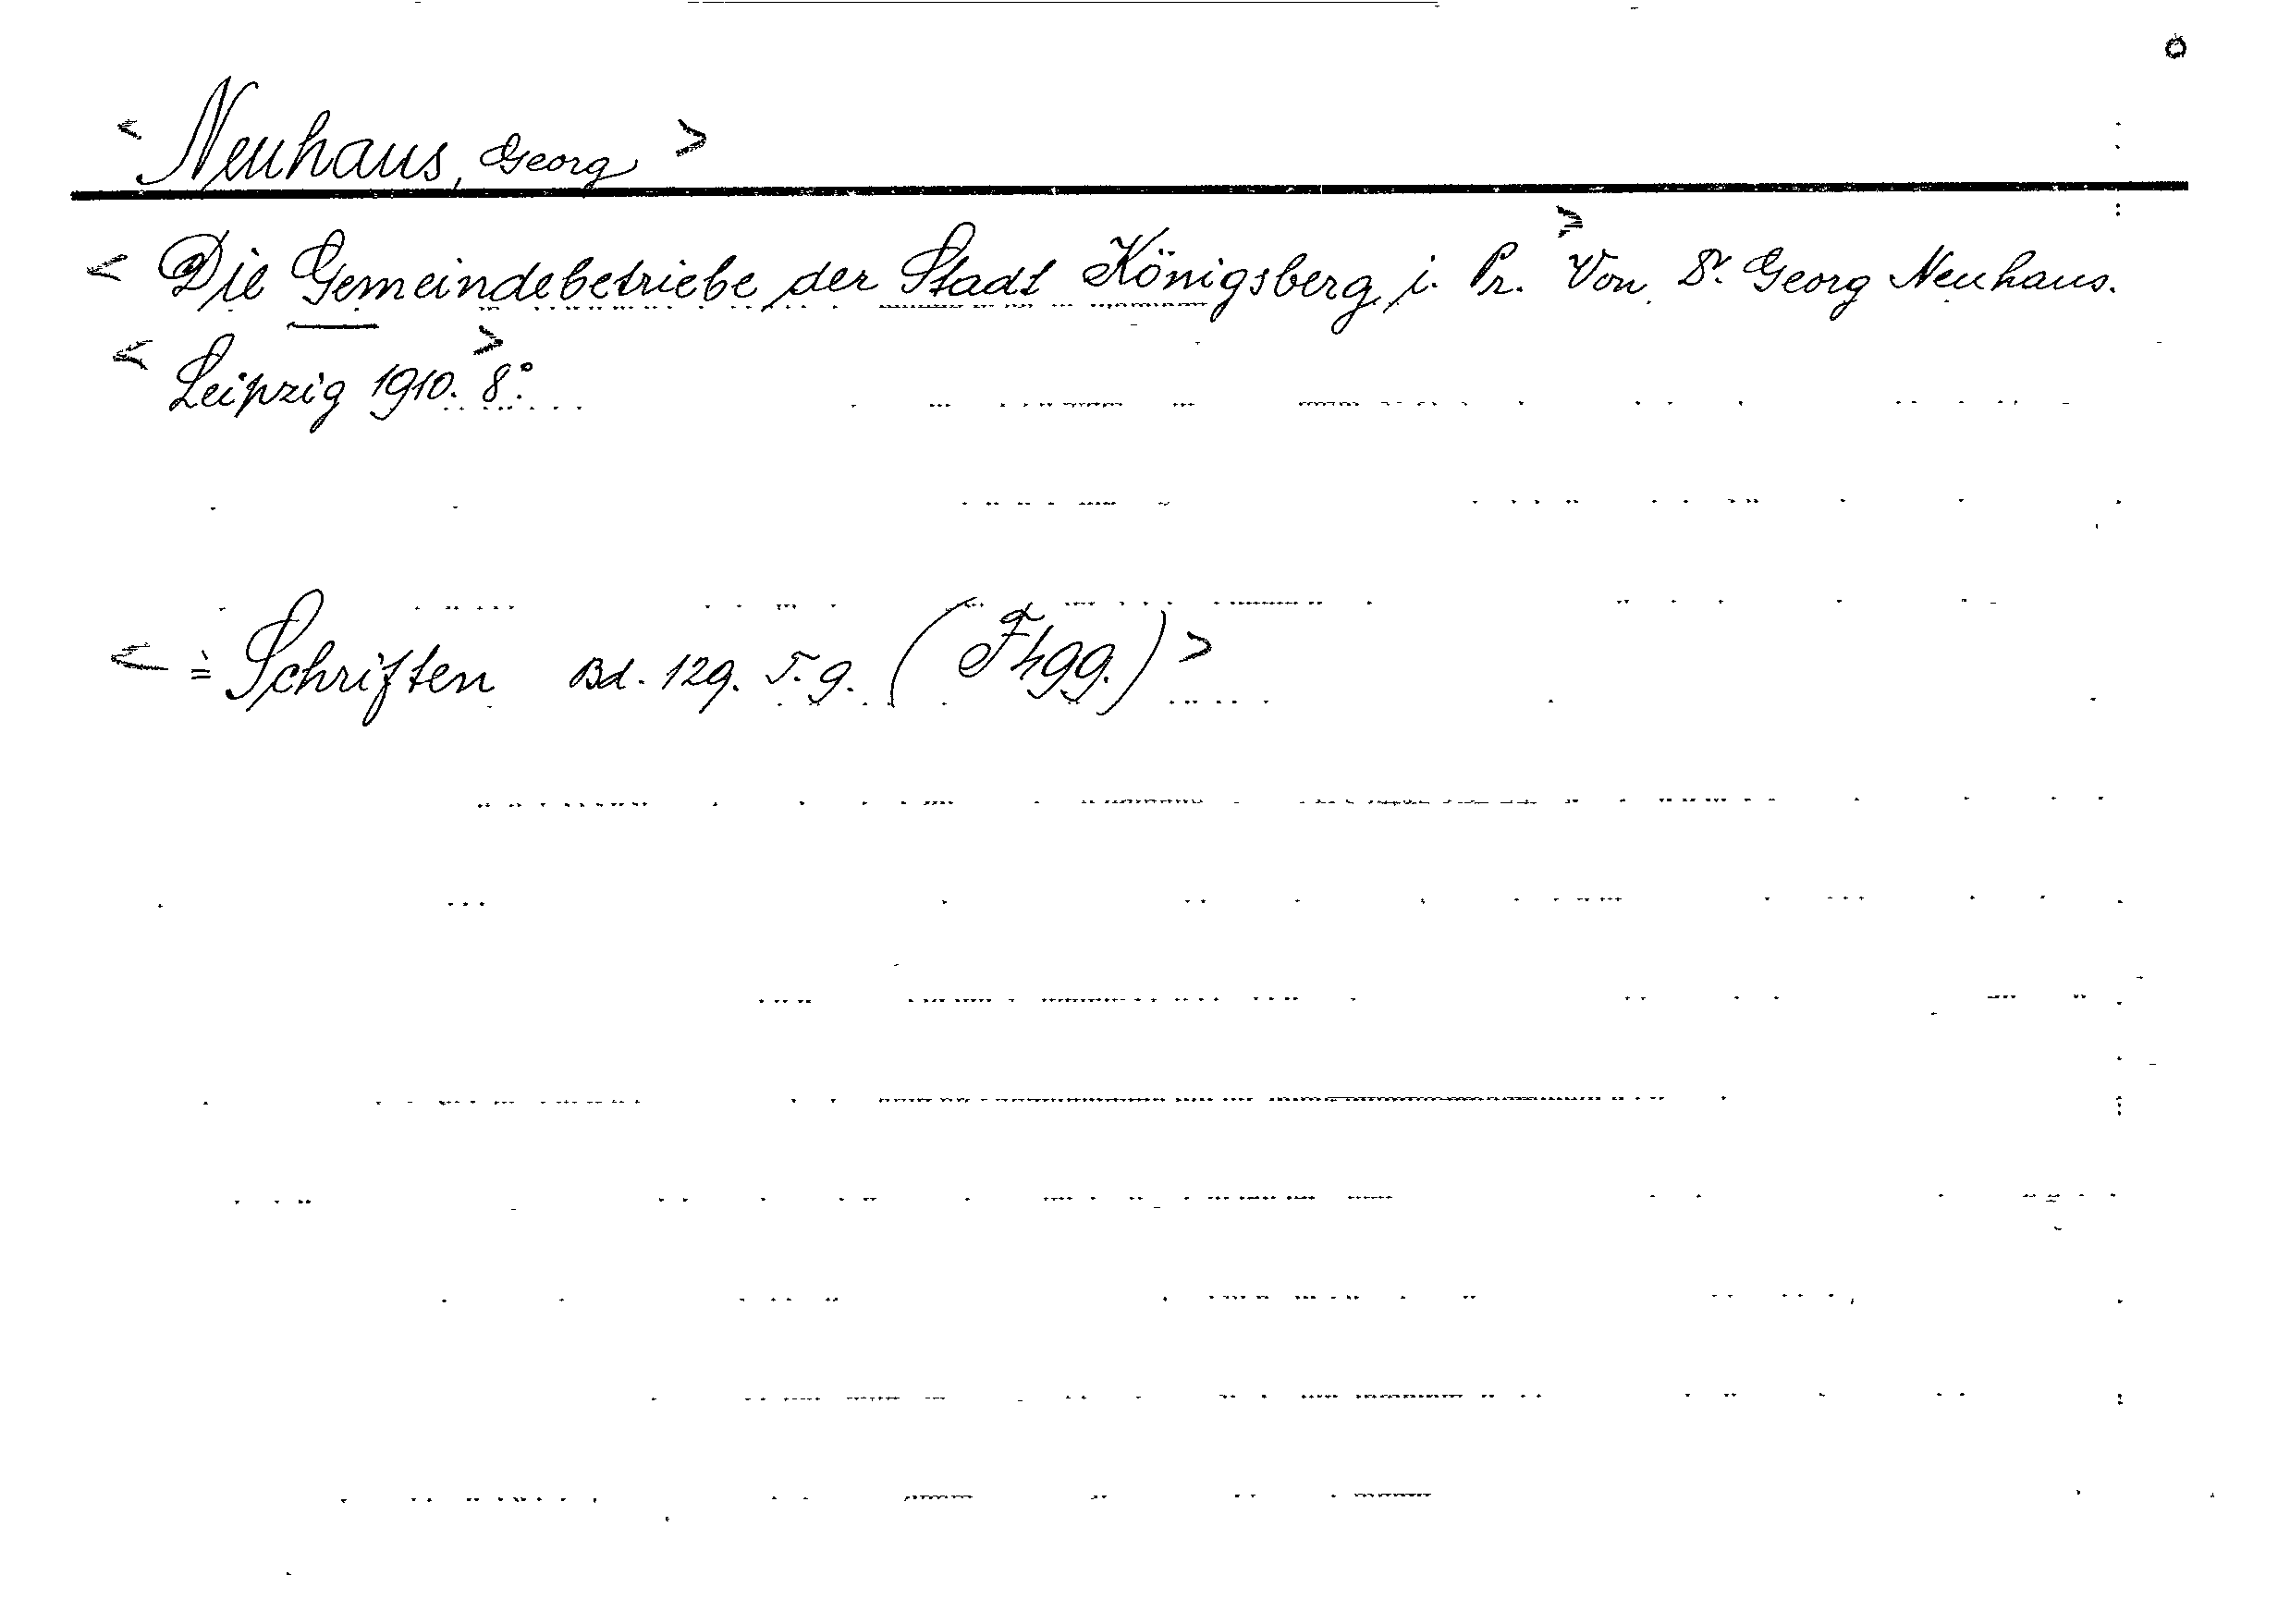 < Neuhaus, Georg >
< Die Gemeindebetriebe der Stadt Königsberg i. Pr. > Von Dr. Georg Neuhaus.
< Leipzig 1910. > 8°.
< = Schriften Bd. 129. T. 9. (Fh99.) >